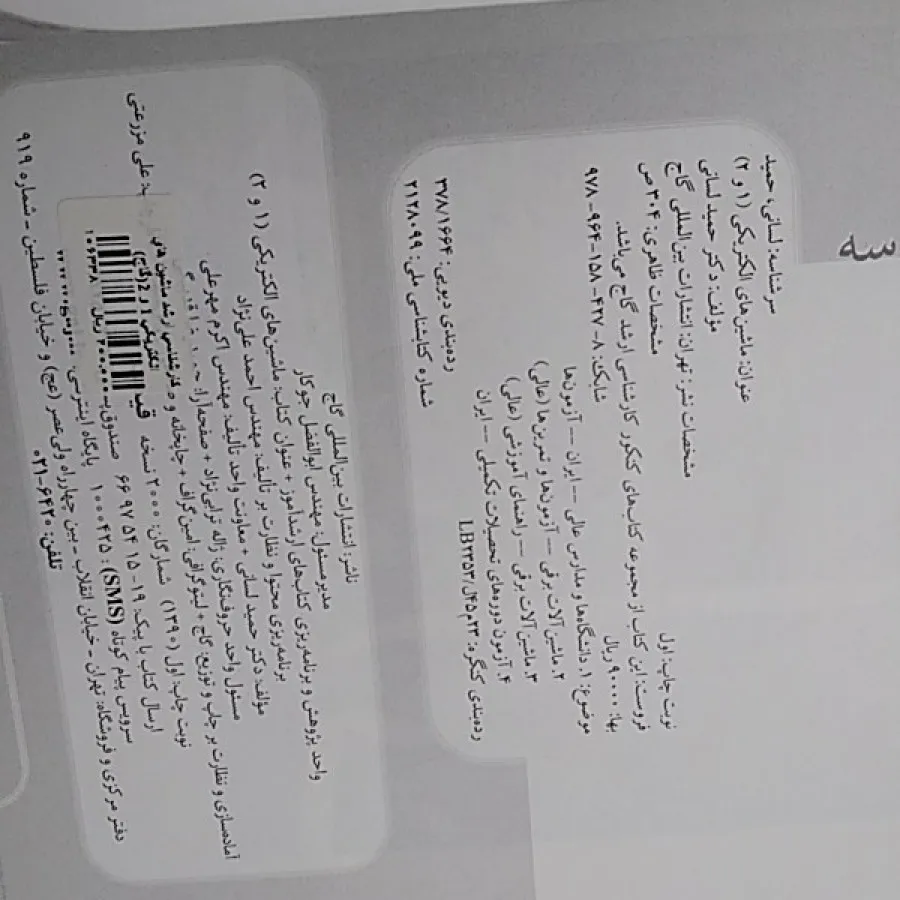 سه
سرشناسه: لسانی، حمید
عنوان: ماشین‌های الکتریکی (۱ و ۲)
مؤلف: دکتر حمید لسانی
مشخصات نشر: تهران: انتشارات بین‌المللی گاج
مشخصات ظاهری: ۳۰۴ ص
نوبت چاپ: اول
فروست: این کتاب از مجموعه کتاب‌های کنکور کارشناسی ارشد گاج می‌باشد.
بها: ۹۰۰۰۰ ریال
شابک: ۸-۴۲۷-۱۵۸-۹۶۴-۹۷۸
موضوع: ۱. دانشگاه‌ها و مدارس عالی -- ایران -- آزمون‌ها
۲. ماشین‌آلات برقی -- آزمون‌ها و تمرین‌ها (عالی)
۳. ماشین‌آلات برقی -- راهنمای آموزشی (عالی)
۴. آزمون دوره‌های تحصیلات تکمیلی -- ایران
رده‌بندی کنگره: LB۲۳۵۳/ل۴۵م۲۳
رده‌بندی دیویی: ۳۷۸/۱۶۶۴
شماره کتابشناسی ملی: ۲۱۲۸۰۹۹
ناشر: انتشارات بین‌المللی گاج
مدیر مسئول: مهندس ابوالفضل جوکار
واحد پژوهش و برنامه‌ریزی کتاب‌های ارشدآموز + عنوان کتاب: ماشین‌های الکتریکی (۱ و ۲)
برنامه‌ریزی محتوا و نظارت بر تألیف: مهندس احمد علی‌نژاد
مؤلف: دکتر حمید لسانی + معاونت واحد تألیف: مهندس اکرم مهرعلی
مسئول واحد حروفنگاری: ژاله ترابی‌نژاد + صفحه‌آرا:
آماده‌سازی و نظارت بر چاپ و توزیع: گاج + لیتوگرافی: امین گراف + چاپخانه و علی مزرعتی
نوبت چاپ: اول (۱۳۹۰) شمارگان: ۲۰۰۰ نسخه
ارسال کتاب با پیک: ۱۹-۱۵ ۵۴ ۹۷ ۶۶ صندوق
سرویس پیام کوتاه (SMS): ۱۰۰۰۶۴۲۵ پایگاه اینترنتی:
دفتر مرکزی و فروشگاه: تهران - خیابان انقلاب - بین چهارراه ولی‌عصر (عج) و خیابان فلسطین - شماره ۹۱۹
تلفن: ۶۴۲۰-۰۲۱
کارشناسی ارشد ماشین های
الکتریکی 1 و 2(گاج)
۱۰۶۳۳۸
۲۰۰,۰۰۰ ریال